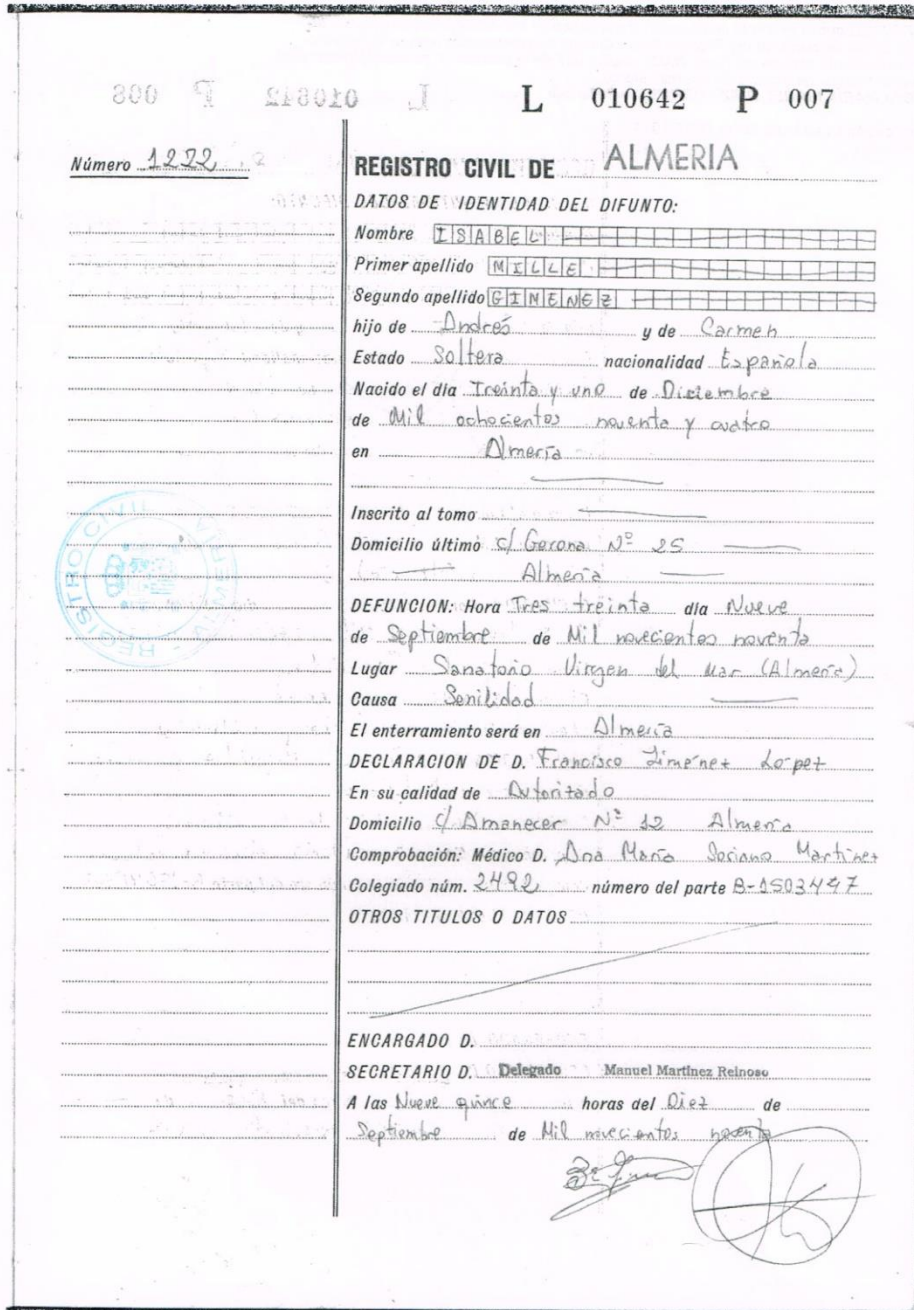 L 010642 P 007
Número 1222
REGISTRO CIVIL DE ALMERIA
DATOS DE IDENTIDAD DEL DIFUNTO:
Nombre ISABEL
Primer apellido MILLE
Segundo apellido GIMENEZ
hijo de Andrés y de Carmen
Estado Soltera nacionalidad Española
Nacido el día Treinta y uno de Diciembre
de Mil ochocientos noventa y cuatro
en Almería
Inscrito al tomo
Domicilio último c/ Gerona Nº 25
Almería
DEFUNCION: Hora Tres treinta día Nueve
de Septiembre de Mil novecientos noventa
Lugar Sanatorio Virgen del Mar (Almería)
Causa Senilidad
El enterramiento será en Almería
DECLARACION DE D. Francisco Jiménez López
En su calidad de Autorizado
Domicilio c/ Amanecer Nº 12 Almería
Comprobación: Médico D. Ana María Soriano Martínez
Colegiado núm. 2492 número del parte B-1503447
OTROS TITULOS O DATOS
ENCARGADO D.
SECRETARIO D. Delegado Manuel Martínez Reinoso
A las Nueve quince horas del Diez de
Septiembre de Mil novecientos noventa
REGISTRO CIVIL - ALMERIA